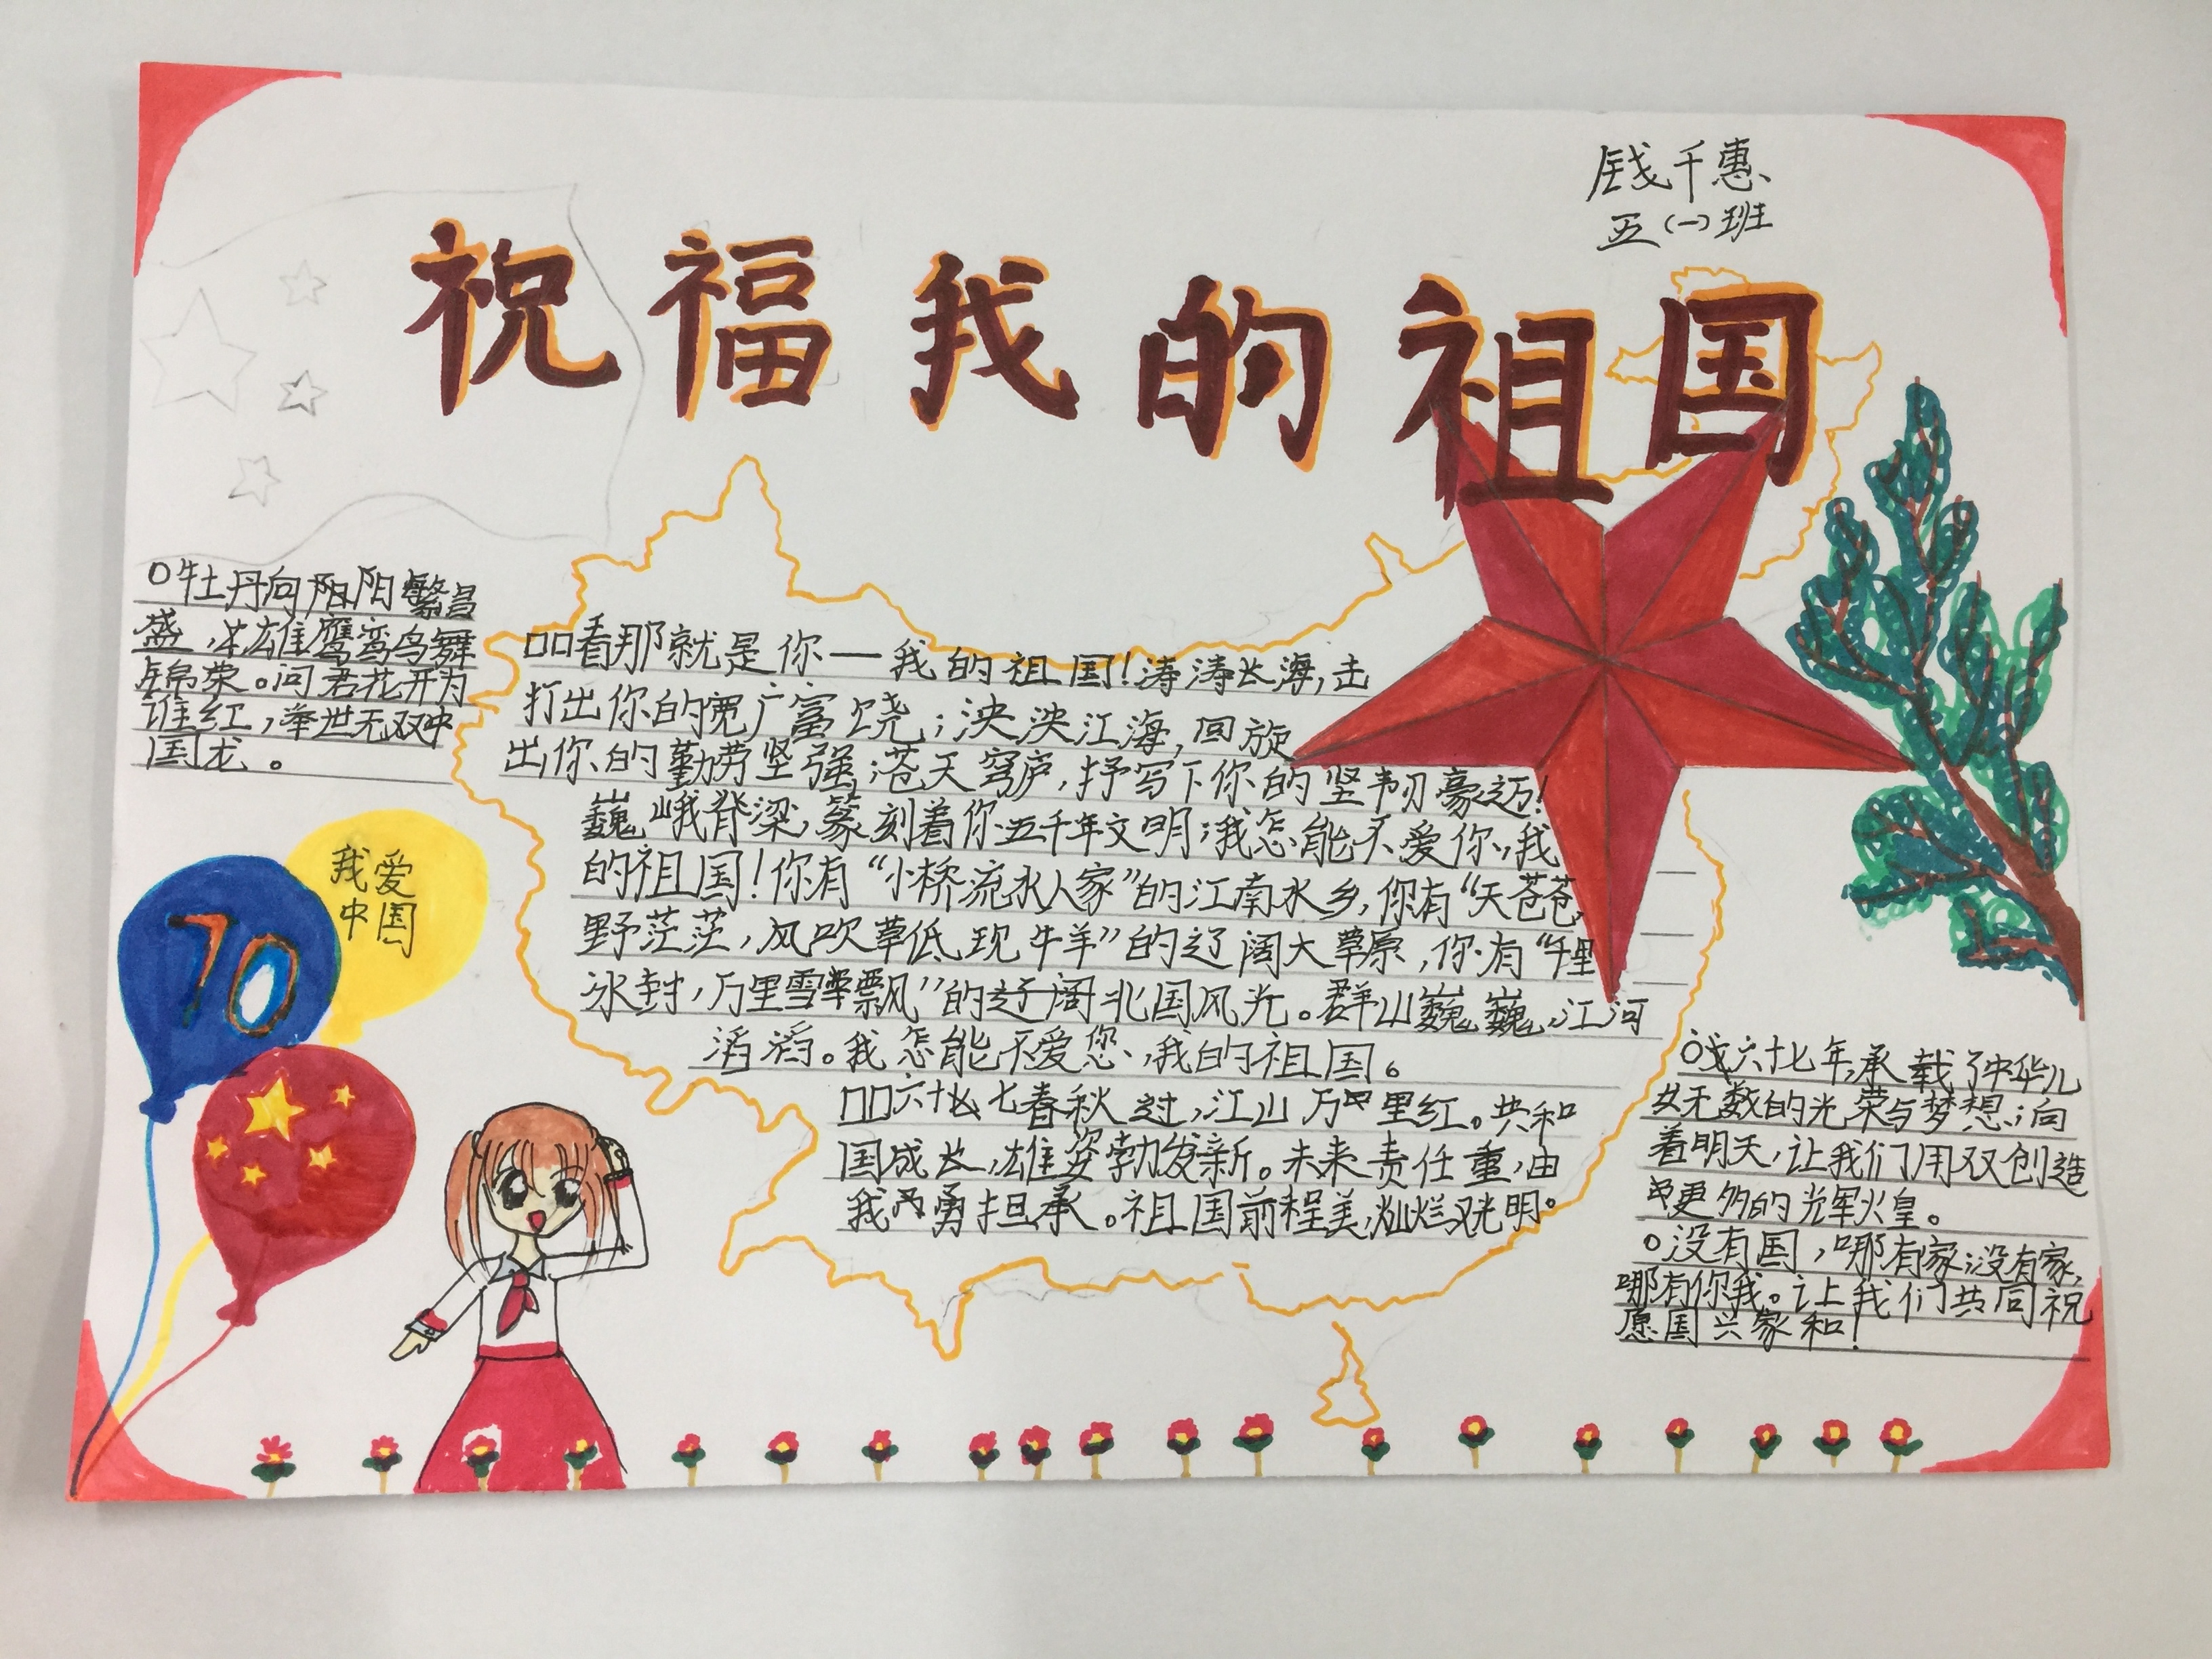 钱千惠
五(一)班
祝福我的祖国
牡丹向阳阳繁昌
盛,雄鹰鸾鸟舞
锦荣。问君花开为
谁红,举世无双中
国龙。
看那就是你——我的祖国!涛涛长海,击
打出你的宽广富饶;泱泱江海,回旋
出你的勤劳坚强;苍天穹庐,抒写下你的坚韧豪迈!
巍峨脊梁,篆刻着你五千年文明;我怎能不爱你,我
的祖国!你有“小桥流水人家”的江南水乡,你有“天苍苍,
野茫茫,风吹草低现牛羊”的辽阔大草原,你有“千里
冰封,万里雪飘”的辽阔北国风光。群山巍巍,江河
滔滔。我怎能不爱您,我的祖国。
六十七春秋过,江山万里红。共和
国成长,雄姿勃发新。未来责任重,由
我勇担承。祖国前程美,灿烂光明。
我爱
中国
70
六十七年,承载了中华儿
女无数的光荣与梦想;向
着明天,让我们用双创造
更多的光辉火皇。
没有国,哪有家;没有家,
哪有你我。让我们共同祝
愿国兴家和!